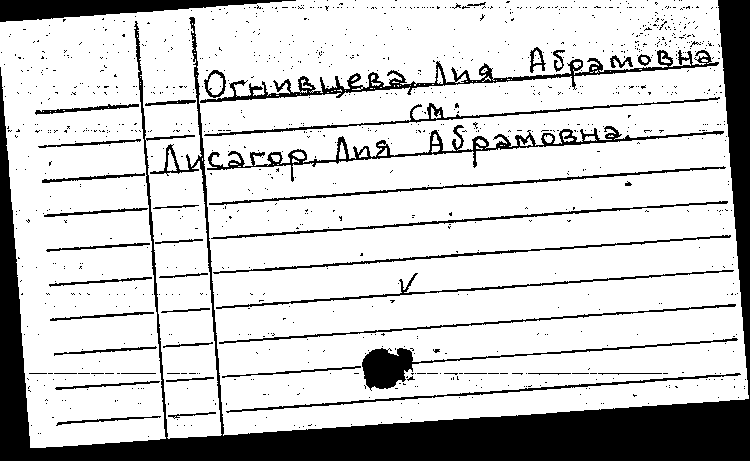 Огнивцева, Лия Абрамовна
см:
Лисагор, Лия Абрамовна.